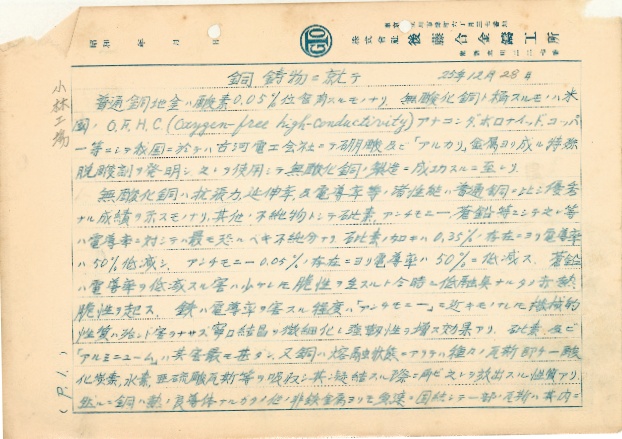 株式会社 後藤合金鋳工所
GTO
昭和 年 月 日
銅鋳物ニ就テ 25年12月28日
小林工場
普通銅地金ハ酸素0.05%位含有スルモノナリ 無酸化銅ト稱スルモノハ米
國、O.F.H.C.(oxygen-free high-conductivity)アナコンダ、ホロナイト、コッパ
一等ニシテ我国ニ於テハ古河電工会社ニテ硼酸及ビ「アルカリ」金属ヨリ成ル特殊
脱酸剤ヲ発明シ之ヲ使用シテ無酸化銅ノ製造ニ成功スルニ至レリ
無酸化銅ハ抗張力、延伸率、及電導率等ノ諸性能ハ普通銅ニ比シ優秀
ナル成績ヲ示スモノナリ、其他ノ不純物トシテ砒素、アンチモニー、蒼鉛等ニシテ之等
ハ電導率ニ対シテハ最モ恐ルベキ不純分ナリ 砒素ノ如キハ0.35%ノ存在ニヨリ電導率
ハ50%低減シ、アンチモニー0.05%ノ存在ニヨリ電導率ハ50%ニ低減ス、蒼鉛
ハ電導率ヲ低減スル害ハ小ナレ 脆性ヲ 低融臭ナルタメ赤熱
脆性ヲ起ス、鉄ハ電導率ヲ害スル程度ハ「アンチモニー」ニ近キモノナレ 機械的
性質ハ殆ント害ヲナサズ寧ロ結晶ヲ微細化シ強靭性ヲ増ス効果アリ、砒素、及ビ
「アルミニューム」ハ共害最モ甚ダシ、又銅ハ熔融状態ニアリテハ種々ノ瓦斯即チ一酸
化炭素、水素、亜硫酸瓦斯等ヲ吸収シ其凝結スル際ニ再ビ之ヲ放出スル性質アリ、
然ルニ銅ハ熱ノ良導体ナルカラ他ノ非鉄金属ヨリモ急速ニ固結シテ一部ノ瓦斯ハ其内ニ
(P.1.)